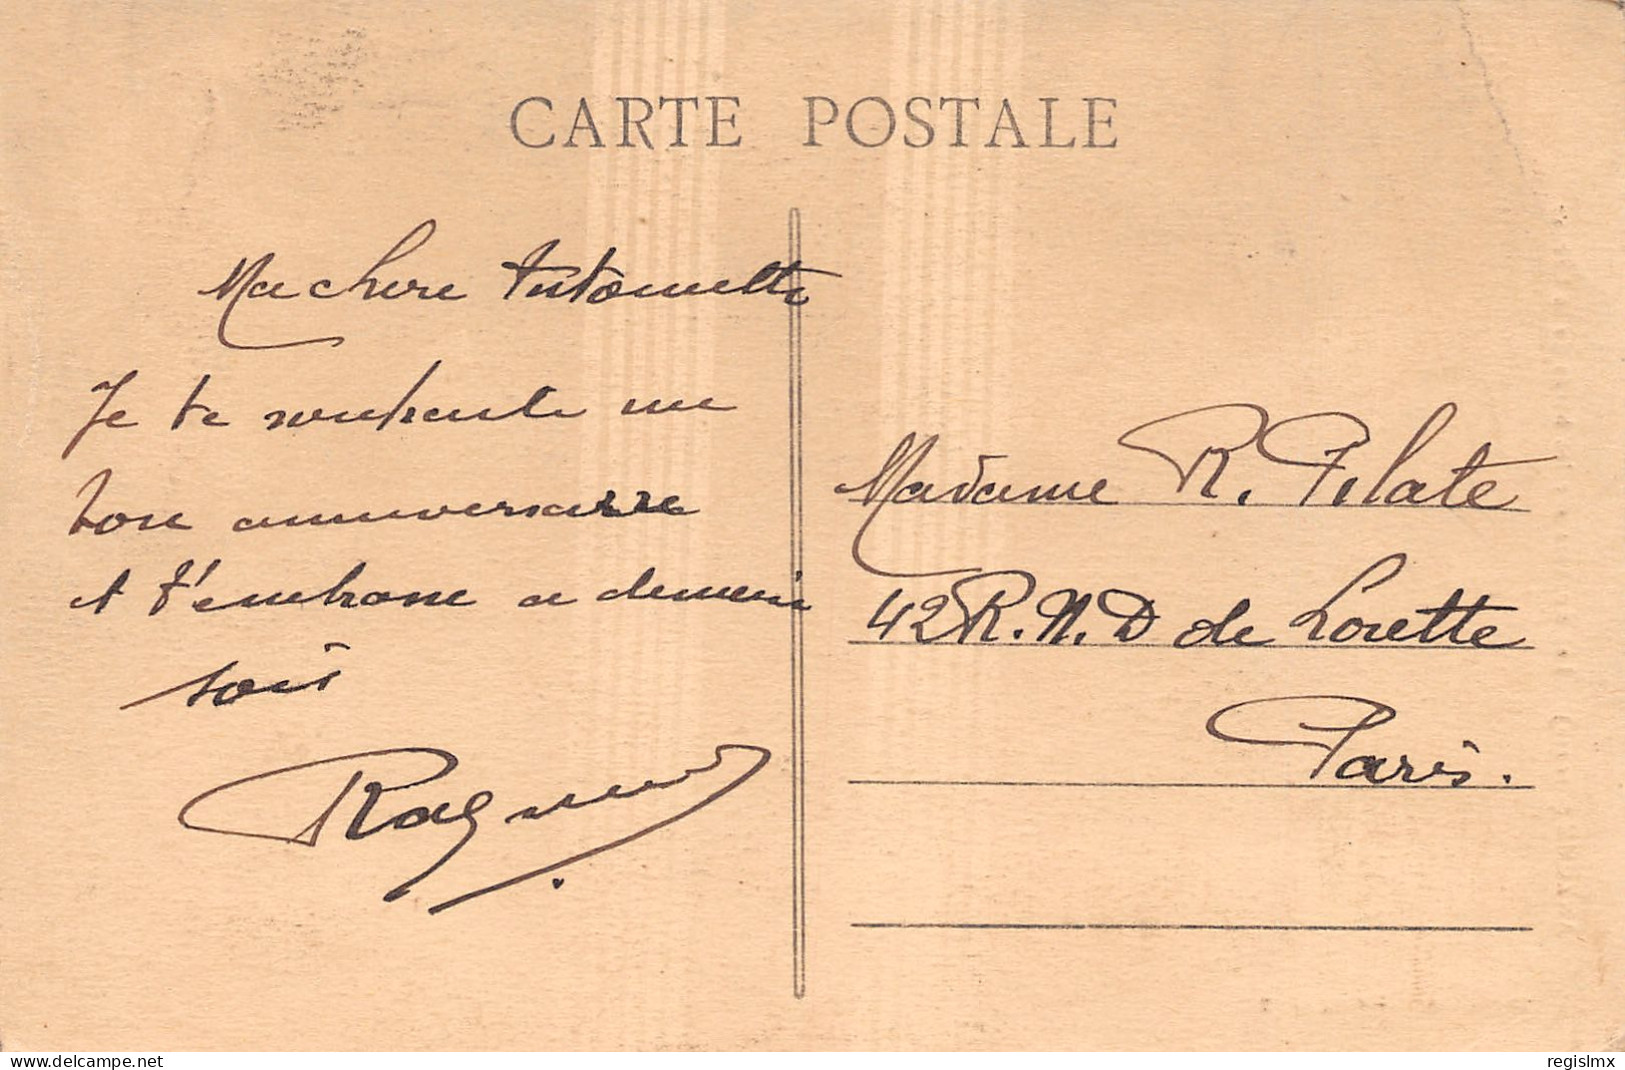 CARTE POSTALE
Ma chere Antoinette
Je te souhaite un
bon anniversaire
et t'embrasse a demain
soir
Madame R. Pilate
42 R. N. D de Lorette
Paris.
www.delcampe.net
regislmx